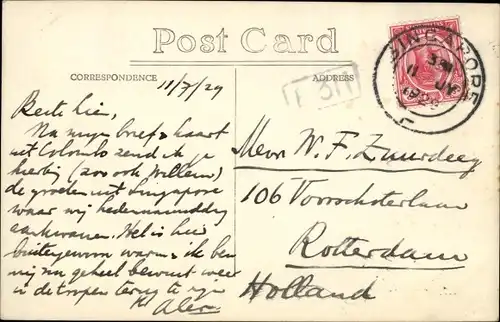 Post Card
CORRESPONDENCE
ADDRESS
11/7/29
T 311
SINGAPORE
Beste Lien,
Na mijn brief & kaart
uit Colombo zend ik je
hierbij (zoo ook Willem)
de groeten uit Singapore
waar wij hedennamiddag
aankwamen. Het is hier
buitengewoon warm & ik ben
mij nu geheel bewust weer
in de tropen terug te zijn
Alex
Mevr W. F. Zuurdeeg
106 Voorschoterlaan
Rotterdam
Holland